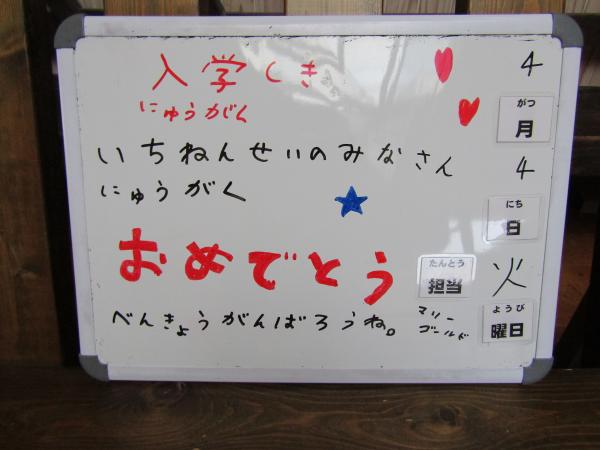 入学しき
にゅうがく
いちねんせいのみなさん
にゅうがく
おめでとう
べんきょうがんばろうね。
4
がつ
月
4
にち
日
火
ようび
曜日
たんとう
担当
マリー
ゴールド